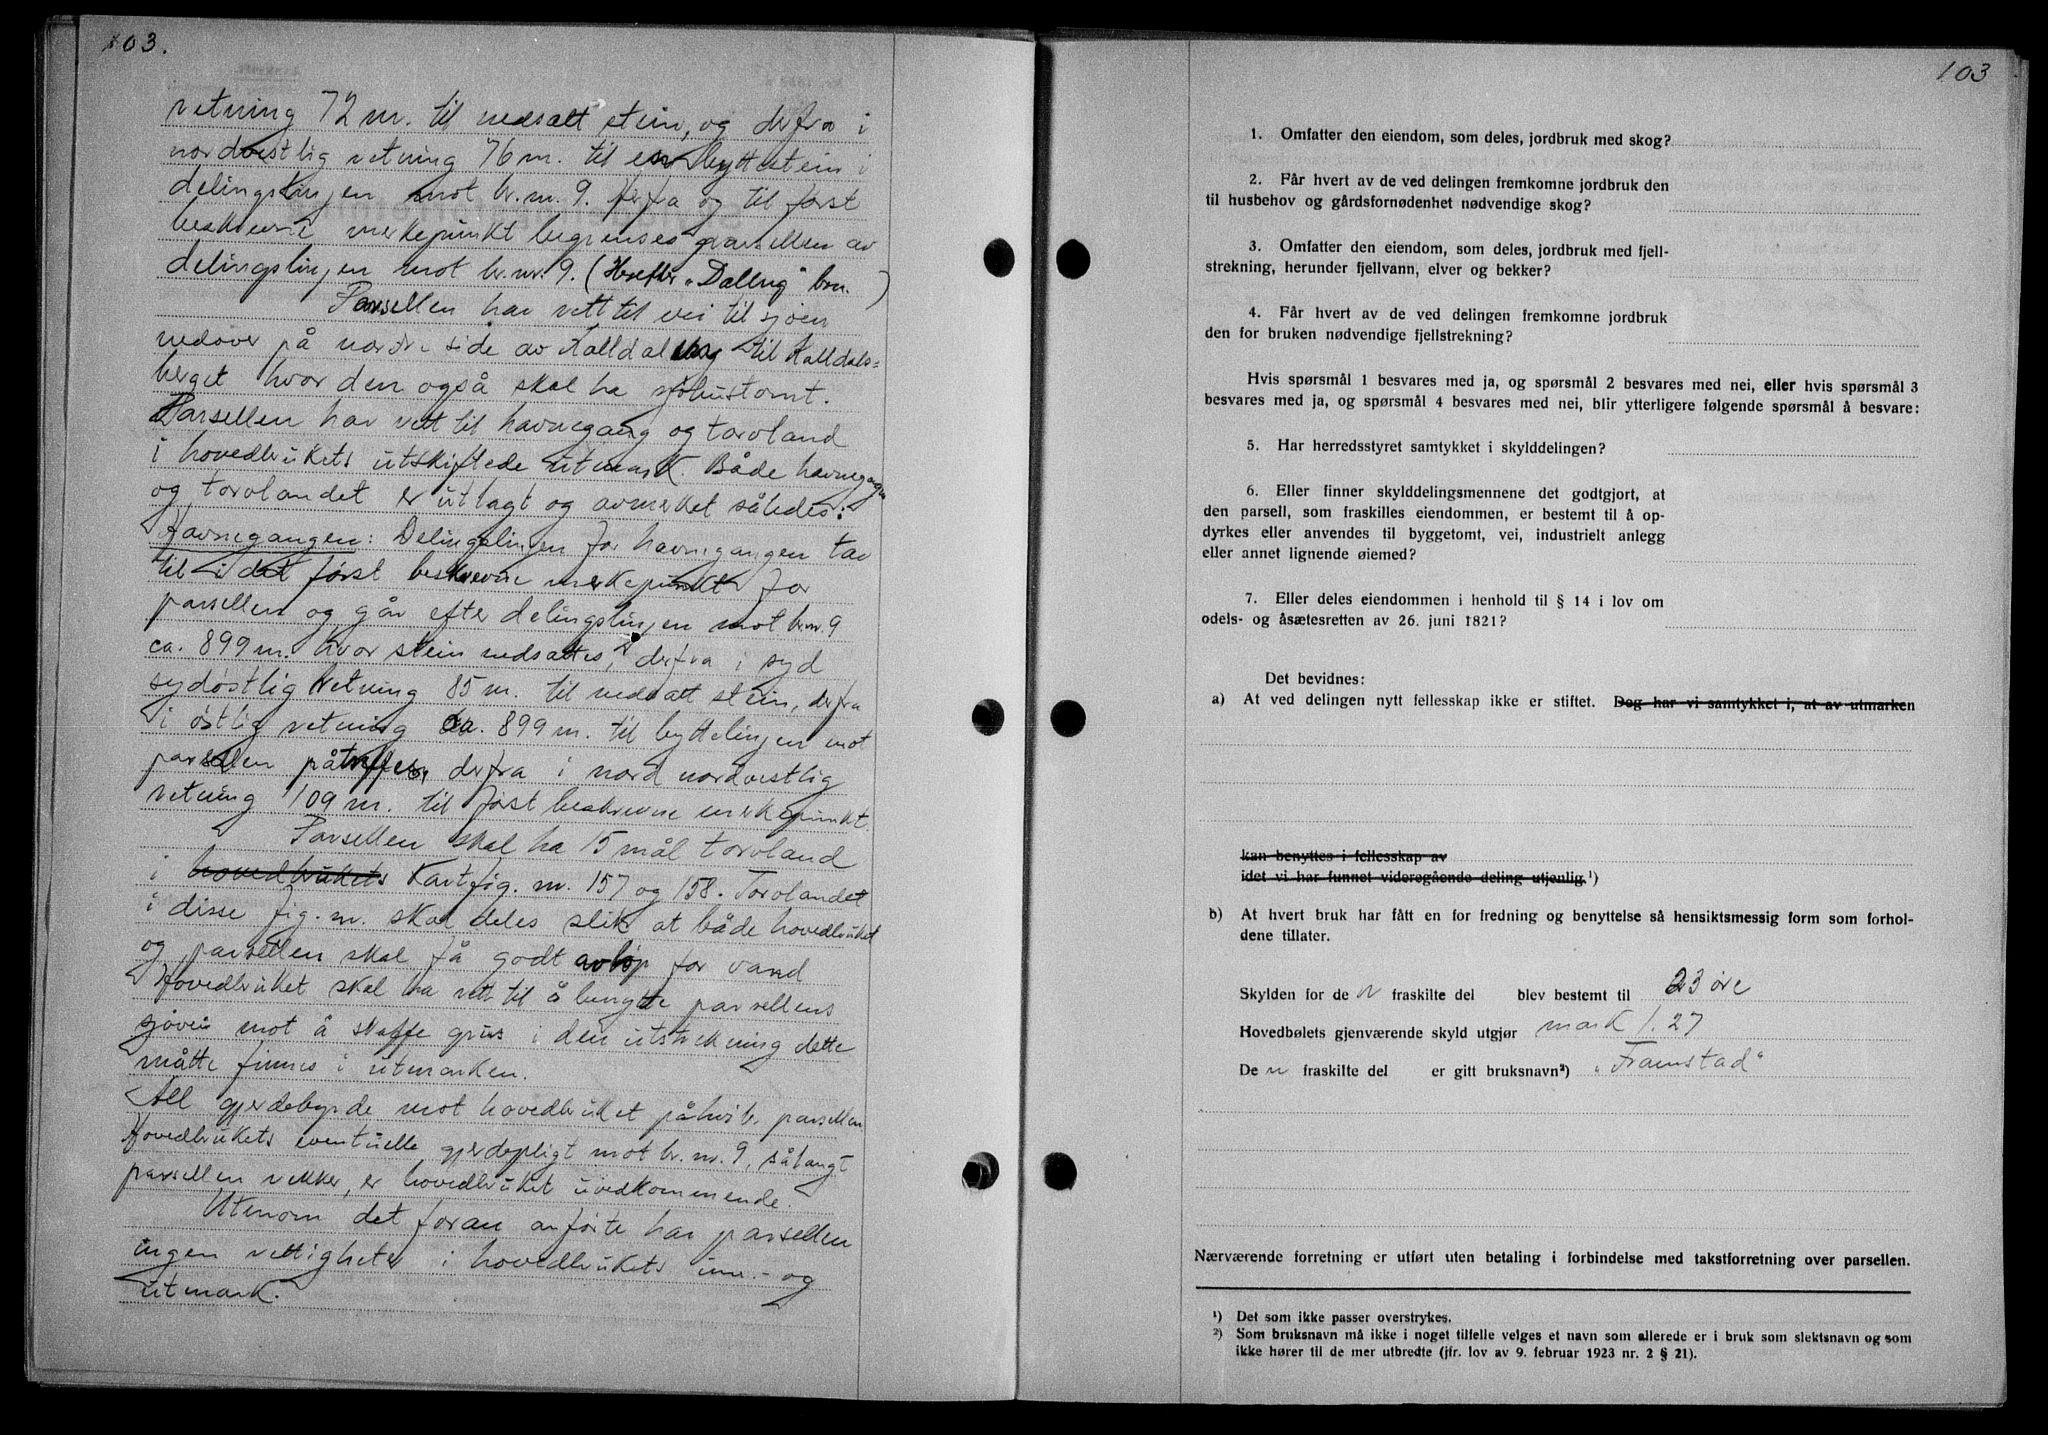 103.
retning 72 m. til nedsatt stein, og derfra i
nordvestlig retning 76 m. til en byttestein i
delingslinjen mot br.nr. 9. Herfra og til først
beskrevne merkepunkt begrenses parsellen av
delingslinjen mot br.nr. 9. (Herefter
Parsellen har rett til vei til sjøen
nedover på nordre side av Kalldal til Kalldals-
berget hvor den også skal ha sjøhustomt.
Parsellen har rett til havnegang og torvland
i hovedbrukets utskiftede utmark. Både havnegangen
og torvlandet er utlagt og avmerket således:
Havnegangen: Delingslinjen for havnegangen tar
til i det først beskrevne merkepunkt for
parsellen og går efter delingslinjen mot br.nr. 9
ca. 899 m. hvor stein nedsattes, derfra i syd
sydøstlig retning 85 m. til nedsatt stein, derfra
i østlig retning ca. 899 m. til byttelinjen mot
parsellen påtreffes, derfra i nord nordvestlig
retning 109 m. til først beskrevne merkepunkt.
Parsellen skal ha 15 mål torvland
i hovedbrukets Kartfig. nr. 157 og 158. Torvlandet
i disse fig. nr. skal deles slik at både hovedbruket
og parsellen skal få godt avløp for vand
Hovedbruket skal ha rett til å benytte parsellens
sjøvei mot å skaffe grus i den utstrekning dette
måtte finnes i utmarken.
All gjerdebyrde mot hovedbruket påhvil. parsellen
Hovedbrukets eventuelle gjerdepligt mot br.nr. 9, sålangt
parsellen rekker, er hovedbruket uvedkommende.
Utenom det foran anførte har parsellen
ingen rettigheter i hovedbrukets inn- og
utmark.
103
1. Omfatter den eiendom, som deles, jordbruk med skog?
2. Får hvert av de ved delingen fremkomne jordbruk den
til husbehov og gårdsfornødenhet nødvendige skog?
3. Omfatter den eiendom, som deles, jordbruk med fjell-
strekning, herunder fjellvann, elver og bekker?
4. Får hvert av de ved delingen fremkomne jordbruk
den for bruken nødvendige fjellstrekning?
Hvis spørsmål 1 besvares med ja, og spørsmål 2 besvares med nei, eller hvis spørsmål 3
besvares med ja, og spørsmål 4 besvares med nei, blir ytterligere følgende spørsmål å besvare:
5. Har herredsstyret samtykket i skylddelingen?
6. Eller finner skylddelingsmennene det godtgjort, at
den parsell, som fraskilles eiendommen, er bestemt til å op-
dyrkes eller anvendes til byggetomt, vei, industrielt anlegg
eller annet lignende øiemed?
7. Eller deles eiendommen i henhold til § 14 i lov om
odels- og åsætesretten av 26. juni 1821?
Det bevidnes:
a) At ved delingen nytt fellesskap ikke er stiftet. Dog har vi samtykket i, at av utmarken
kan benyttes i fellesskap av
idet vi har funnet videregående deling utjenlig.¹)
b) At hvert bruk har fått en for fredning og benyttelse så hensiktsmessig form som forhol-
dene tillater.
Skylden for de n fraskilte del blev bestemt til 23 øre
Hovedbølets gjenværende skyld utgjør mark 1.27
De n fraskilte del er gitt bruksnavn²) „Framstad"
Nærværende forretning er utført uten betaling i forbindelse med takstforretning over parsellen.
¹) Det som ikke passer overstrykes.
²) Som bruksnavn må ikke i noget tilfelle velges et navn som allerede er i bruk som slektsnavn og som
ikke hører til de mer utbredte (jfr. lov av 9. februar 1923 nr. 2 § 21).